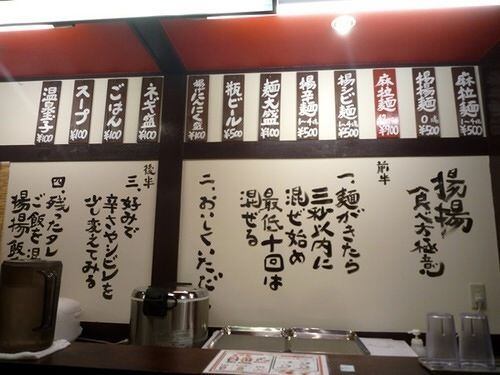 麻拉麺
¥500
揚揚麺
0辛
¥500
麻拉麺
¥900
揚シビ麺
¥500
揚辛麺
¥500
麺大盛
¥100
瓶ビール
¥500
揚げにんにく盛
¥100
ネギ盛
¥100
ごはん
¥100
スープ
¥100
温泉玉子
¥100
揚揚
(食べ方極意)
前半
一、麺がきたら
三秒以内に
混ぜ始め
最低十回は
混ぜる
二、おいしくいただ
後半
三、好みで
辛さやシビレを
少し変えてみる
四、残ったタレ
ご飯を混
揚揚飯